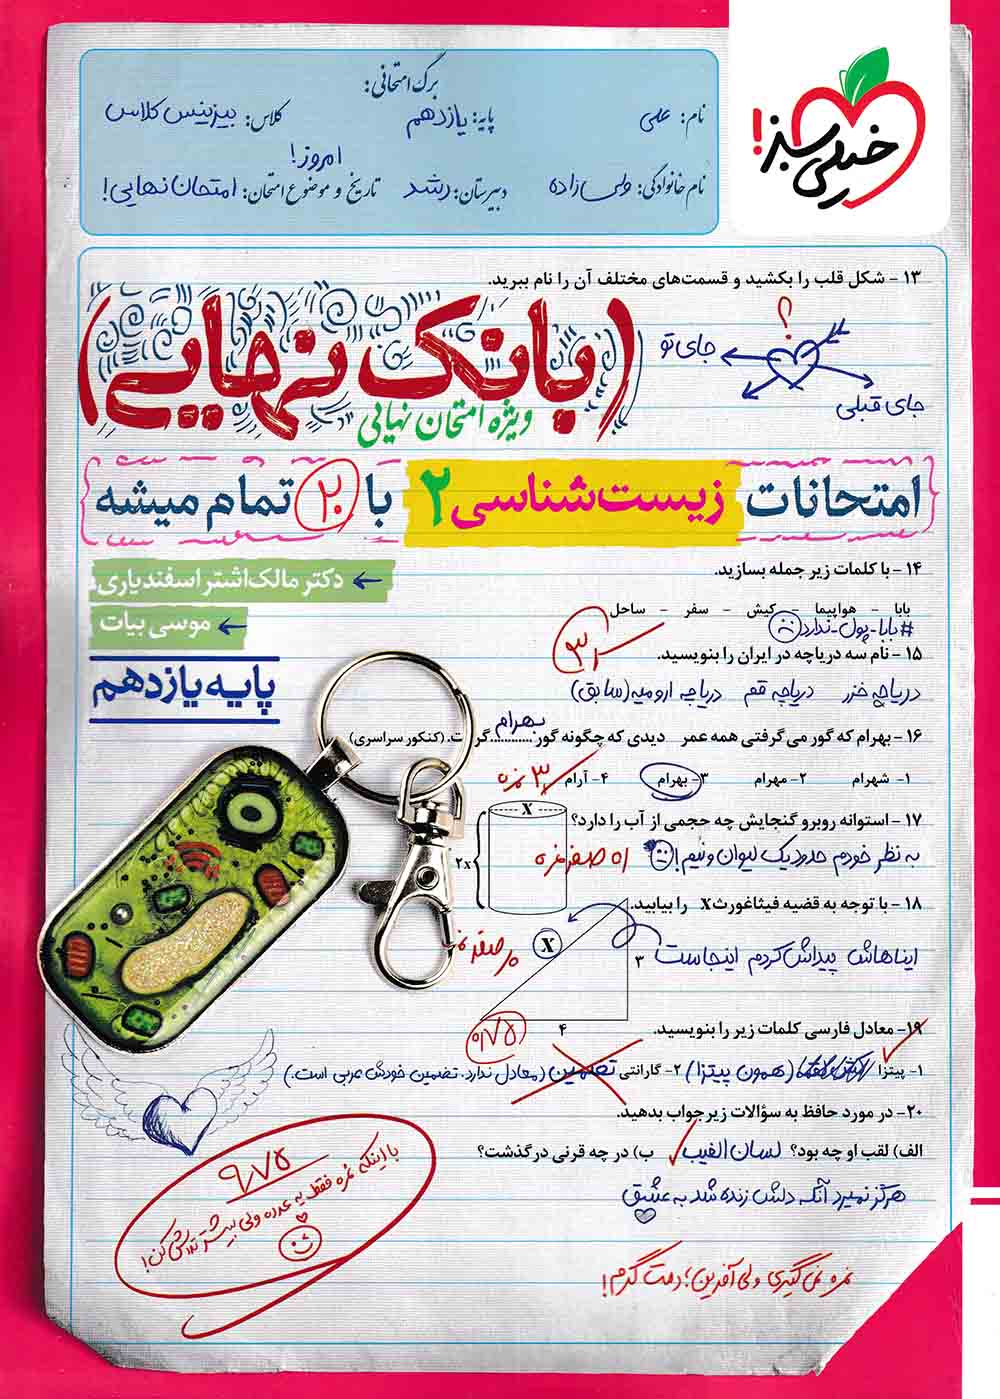 خیلی سبز!
برگ امتحانی:
نام: علی پایه: یازدهم کلاس: بیزینس کلاس
نام خانوادگی: ولی زاده دبیرستان: رشد تاریخ و موضوع امتحان: امروز! امتحان نهایی!
۱۳ - شکل قلب را بکشید و قسمت‌های مختلف آن را نام ببرید.
؟
جای تو
جای قبلی
(بانک نهایی)
ویژه امتحان نهایی
امتحانات زیست‌شناسی ۲ با ۲۰ تمام میشه
دکتر مالک‌اشتر اسفندیاری
موسی بیات
پایه یازدهم
۱۴ - با کلمات زیر جمله بسازید.
بابا - هواپیما - کیش - سفر - ساحل
#بابا-پول-ندارد
۳
۱۵ - نام سه دریاچه در ایران را بنویسید.
دریاچه خزر دریاچه قم دریاچه ارومیه (سابق)
۱۶ - بهرام که گور می‌گرفتی همه عمر دیدی که چگونه گور بهرام گرفت. (کنکور سراسری)
۱- شهرام ۲- مهرام ۳- بهرام ۴- آرام
۳ نمره
۱۷ - استوانه روبرو گنجایش چه حجمی از آب را دارد؟
x
2x
به نظر خودم حدود یک لیوان و نیم!
صفر نمره
۱۸ - با توجه به قضیه فیثاغورث x را بیابید.
ایناهاش پیداش کردم اینجاست
X
۳
۴
صفر
۰/۷۵
۱۹- معادل فارسی کلمات زیر را بنویسید.
۱- پیتزا (همون پیتزا) ۲- گارانتی تضمین (معادل ندارد. تضمین خودش عربی است.)
۲۰- در مورد حافظ به سؤالات زیر جواب بدهید.
الف) لقب او چه بود؟ لسان الغیب ب) در چه قرنی درگذشت؟
هرگز نمیرد آنکه دلش زنده شد به عشق
۹/۷۵
با اینکه نمره فقط یه عدده ولی بیشتر تلاش کن!
نمره نمی‌گیری ولی آفرین؛ دمت گرم!